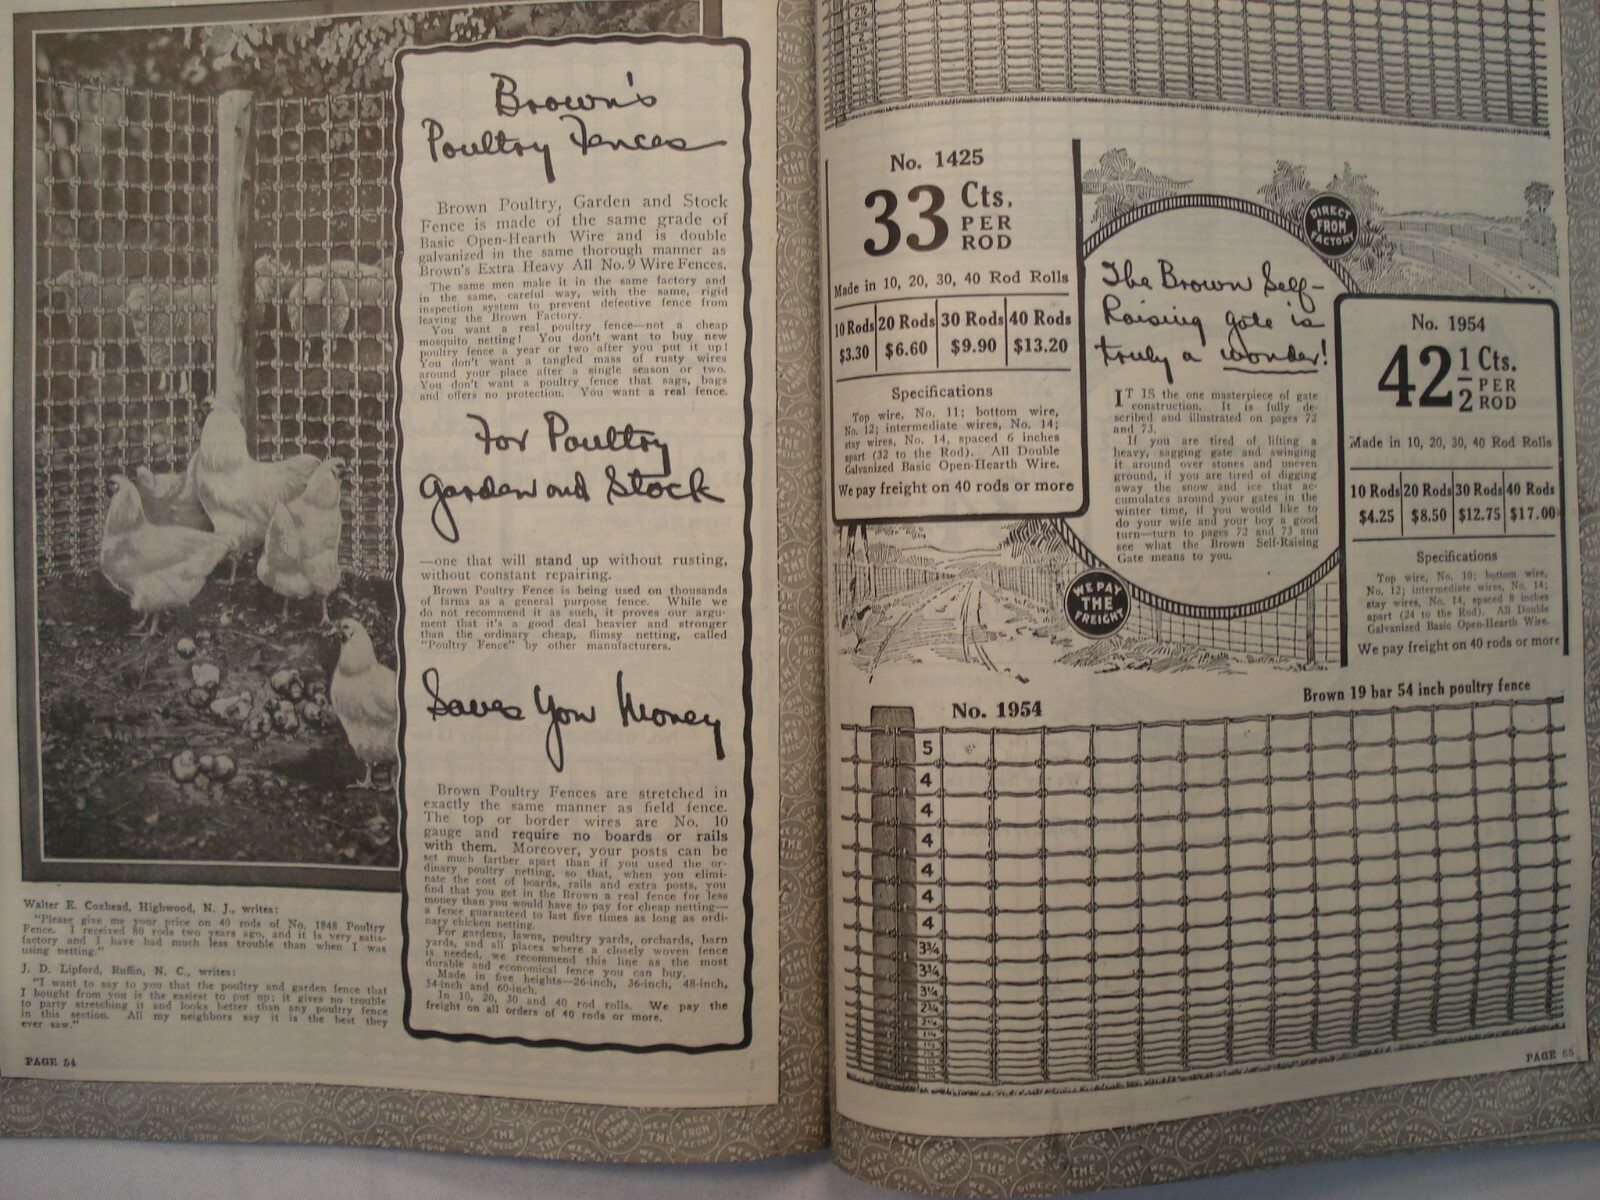 Brown's
Poultry Fences
Brown Poultry, Garden and Stock
Fence is made of the same grade of
Basic Open-Hearth Wire and is double
galvanized in the same thorough manner as
Brown's Extra Heavy All No. 9 Wire Fences.
The same men make it in the same factory and
in the same, careful way, with the same, rigid
inspection system to prevent defective fence from
leaving the Brown Factory.
You want a real poultry fence—not a cheap
mosquito netting! You don't want to buy new
poultry fence a year or two after you put it up!
You don't want a tangled mass of rusty wires
around your place after a single season or two.
You don't want a poultry fence that sags, bags
and offers no protection. You want a real fence.
For Poultry
Garden and Stock
—one that will stand up without rusting,
without constant repairing.
Brown Poultry Fence is being used on thousands
of farms as a general purpose fence. While we
do not recommend it as such, it proves our argu-
ment that it's a good deal heavier and stronger
than the ordinary cheap, flimsy netting, called
"Poultry Fence" by other manufacturers.
Saves You Money
Brown Poultry Fences are stretched in
exactly the same manner as field fence.
The top or border wires are No. 10
gauge and require no boards or rails
with them. Moreover, your posts can be
set much farther apart than if you used the or-
dinary poultry netting, so that, when you elimi-
nate the cost of boards, rails and extra posts, you
find that you get in the Brown a real fence for less
money than you would have to pay for cheap netting—
a fence guaranteed to last five times as long as ordi-
nary chicken netting.
For gardens, lawns, poultry yards, orchards, barn
yards, and all places where a closely woven fence
is needed, we recommend this line as the most
durable and economical fence you can buy.
Made in five heights—26-inch, 36-inch, 48-inch,
54-inch and 60-inch.
In 10, 20, 30 and 40 rod rolls. We pay the
freight on all orders of 40 rods or more.
Walter E. Coxhead, Highwood, N. J., writes:
"Please give me your price on 40 rods of No. 1848 Poultry
Fence. I received 80 rods two years ago, and it is very satis-
factory and I have had much less trouble than when I was
using netting."
J. D. Lipford, Ruffin, N. C., writes:
"I want to say to you that the poultry and garden fence that
I bought from you is the easiest to put up; it gives no trouble
to party stretching it and looks better than any poultry fence
in this section. All my neighbors say it is the best they
ever saw."
PAGE 54
No. 1425
33 Cts.
PER
ROD
Made in 10, 20, 30, 40 Rod Rolls
10 Rods 20 Rods 30 Rods 40 Rods
$3.30 $6.60 $9.90 $13.20
Specifications
Top wire, No. 11; bottom wire,
No. 12; intermediate wires, No. 14;
stay wires, No. 14, spaced 6 inches
apart (32 to the Rod). All Double
Galvanized Basic Open-Hearth Wire.
We pay freight on 40 rods or more
DIRECT
FROM
FACTORY
The Brown Self-
Raising gate is
truly a wonder!
IT IS the one masterpiece of gate
construction. It is fully de-
scribed and illustrated on pages 72
and 73.
If you are tired of lifting a
heavy, sagging gate and swinging
it around over stones and uneven
ground, if you are tired of digging
away the snow and ice that ac-
cumulates around your gates in the
winter time, if you would like to
do your wife and your boy a good
turn—turn to pages 72 and 73 and
see what the Brown Self-Raising
Gate means to you.
WE PAY
THE
FREIGHT
No. 1954
42 1/2 Cts.
PER
ROD
Made in 10, 20, 30, 40 Rod Rolls
10 Rods 20 Rods 30 Rods 40 Rods
$4.25 $8.50 $12.75 $17.00
Specifications
Top wire, No. 10; bottom wire,
No. 12; intermediate wires, No. 14;
stay wires, No. 14, spaced 8 inches
apart (24 to the Rod). All Double
Galvanized Basic Open-Hearth Wire.
We pay freight on 40 rods or more
No. 1954
Brown 19 bar 54 inch poultry fence
5
4
4
4
4
4
4
3¾
3¼
3¼
2¾
2¼
PAGE 55